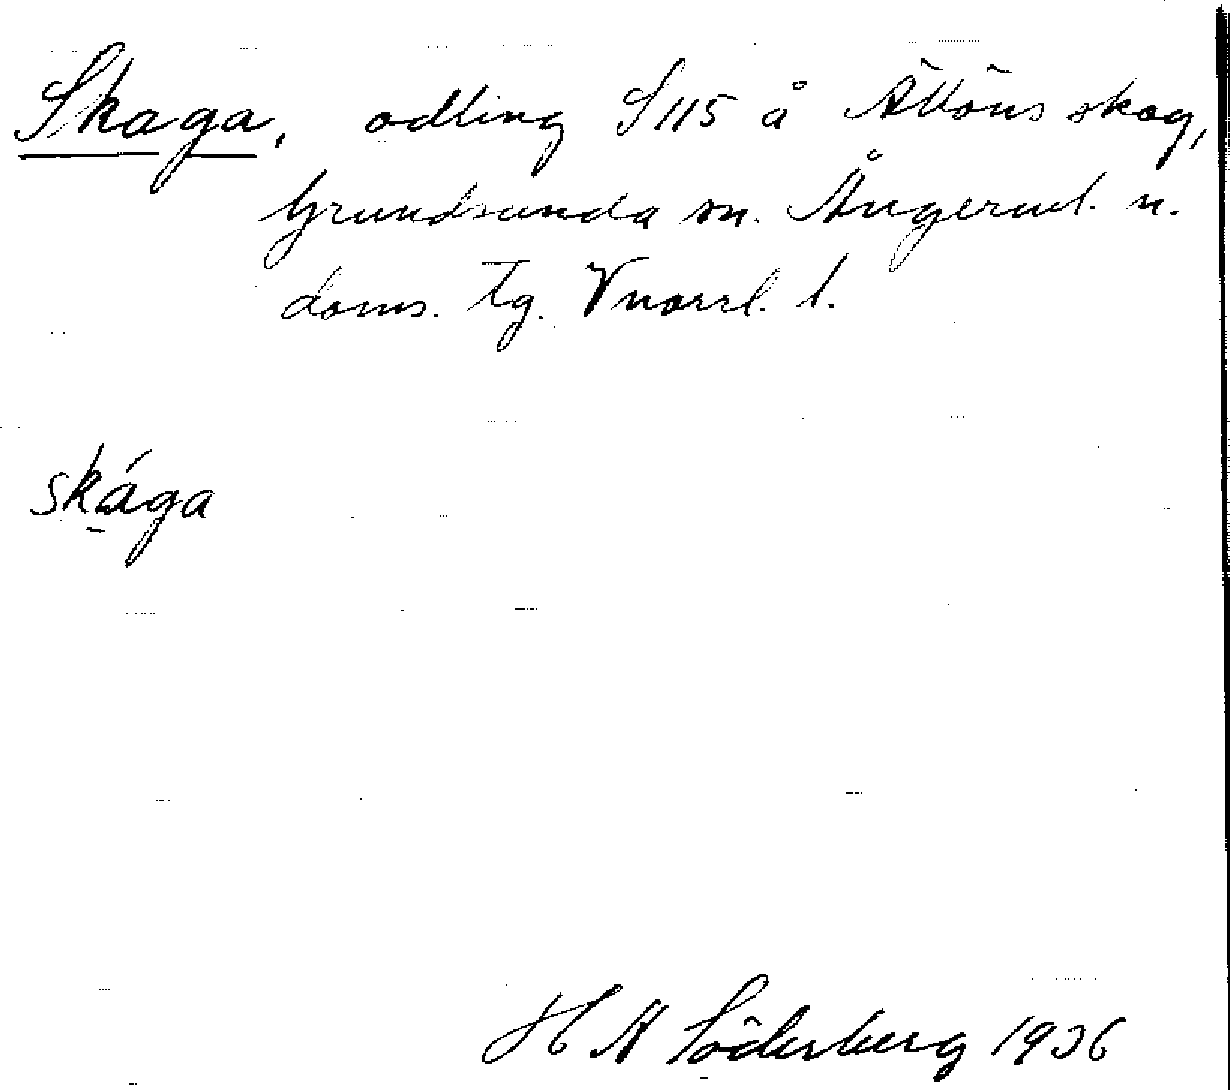 Skaga, odling S 115 å Ältöns skog,
Grundsunda sn. Ångerml. n.
doms. tg. Vnorrl. l.
skága
H A Söderberg 1936